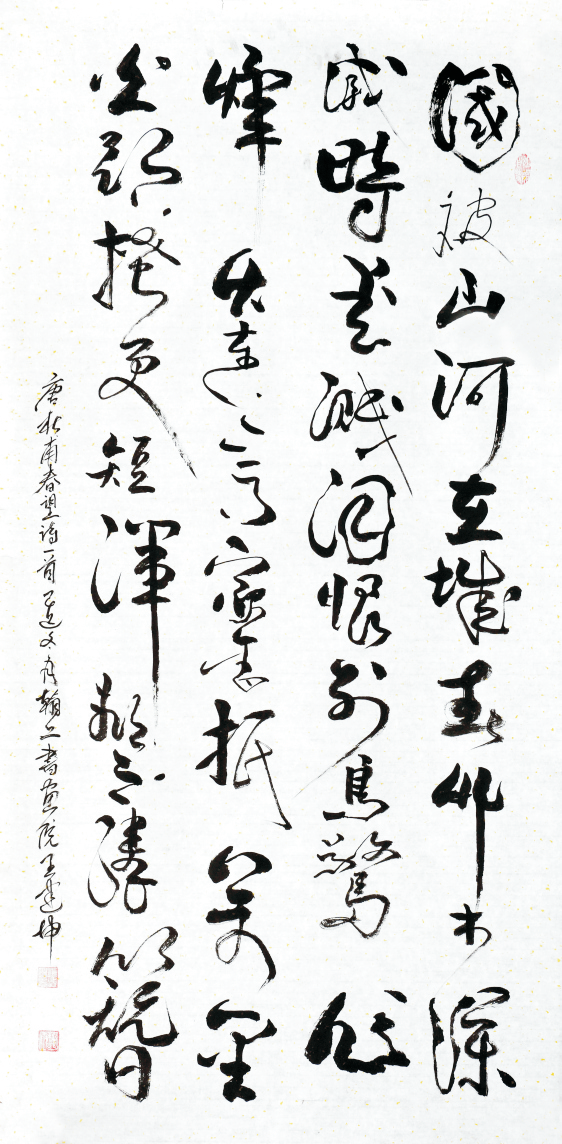 國破山河在城春艸木深
感時花濺淚恨別鳥驚心
烽火連三月家書抵萬金
白頭搔更短渾欲不勝簪
唐杜甫春望詩一首 書畫院王建坤